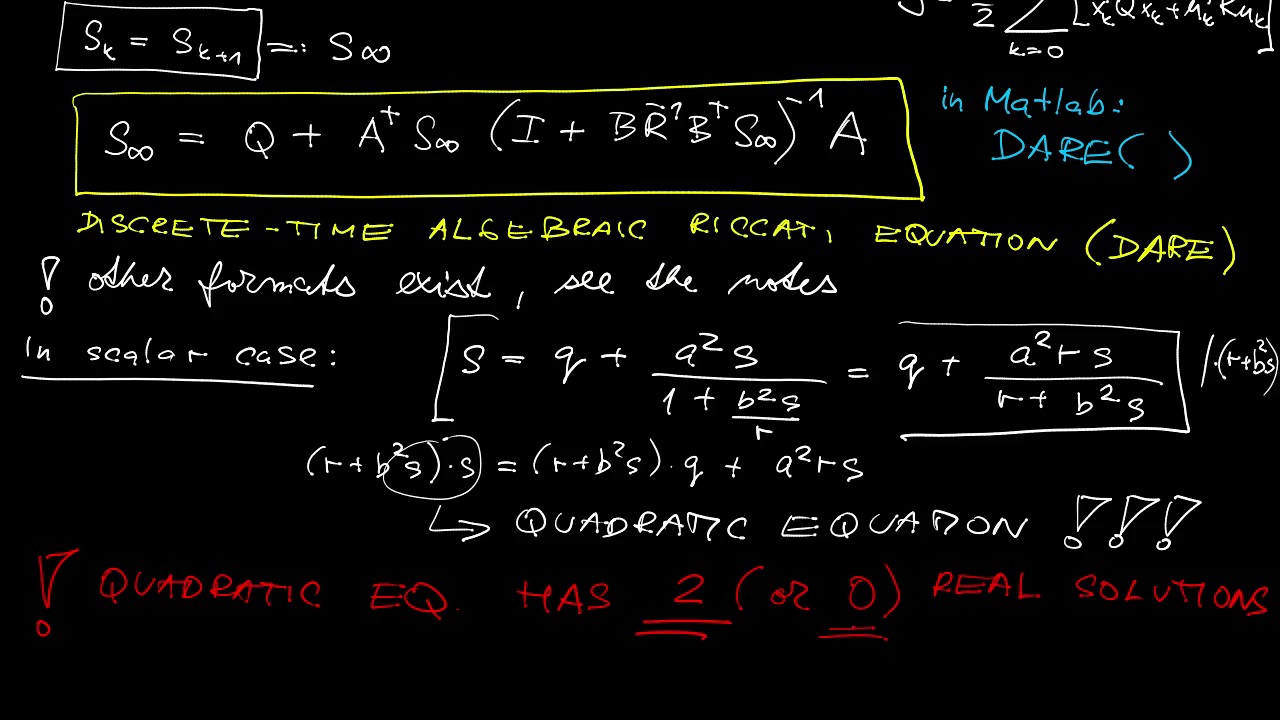 J = 1/2 Σ k=0 [xₖᵀQxₖ + uₖᵀRuₖ]
Sₖ = Sₖ₊₁ =: S∞
S∞ = Q + Aᵀ S∞ (I + B R⁻¹ Bᵀ S∞)⁻¹ A
in Matlab:
DARE( )
DISCRETE-TIME ALGEBRAIC RICCATI EQUATION (DARE)
! other formats exist, see the notes
In scalar case: s = q + a²s / (1 + b²s/r) = q + a²rs / (r + b²s) /·(r+b²s)
(r+b²s)·s = (r+b²s)·q + a²rs
↳ QUADRATIC EQUATION !!!
! QUADRATIC EQ. HAS 2 (or 0) REAL SOLUTIONS